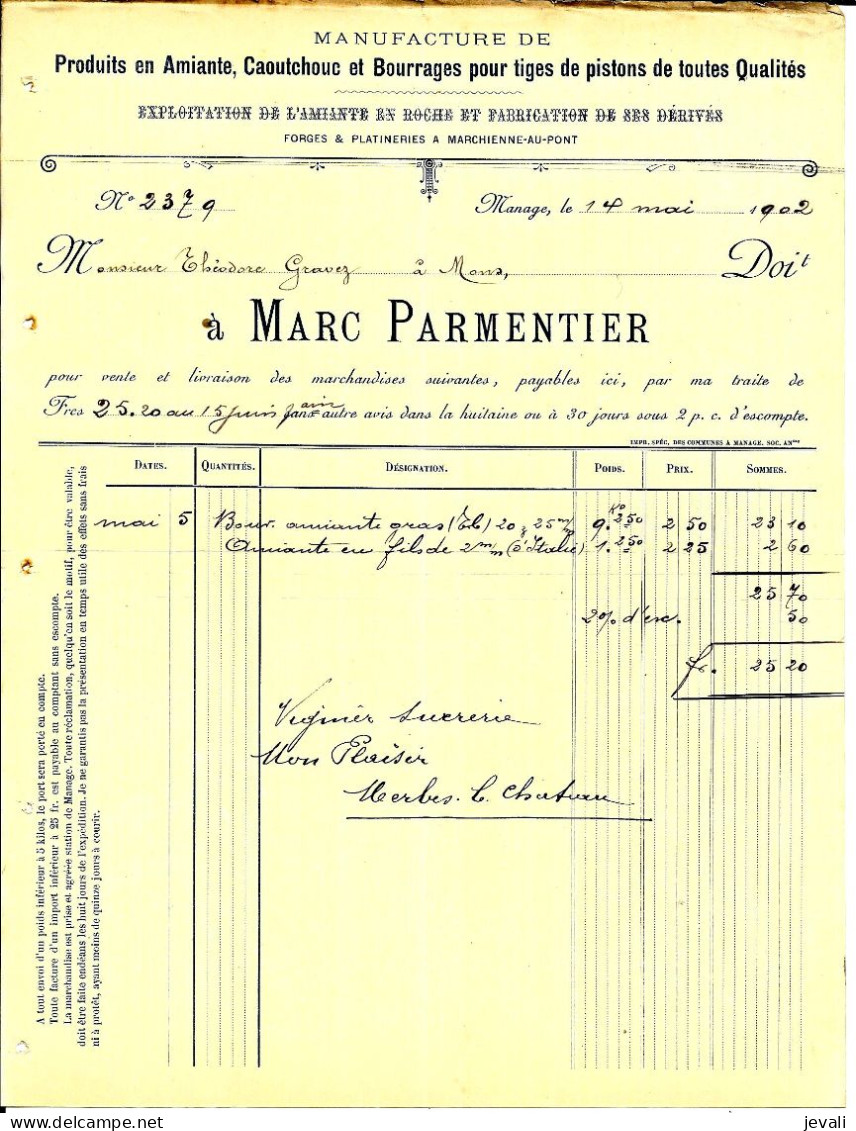 MANUFACTURE DE
Produits en Amiante, Caoutchouc et Bourrages pour tiges de pistons de toutes Qualités
EXPLOITATION DE L'AMIANTE EN ROCHE ET FABRICATION DE SES DÉRIVÉS
FORGES & PLATINERIES A MARCHIENNE-AU-PONT
No 2379
Manage, le 14 mai 1902
Monsieur Théodore Gravez à Mons, Doit
à MARC PARMENTIER
pour vente et livraison des marchandises suivantes, payables ici, par ma traite de
Frcs 25.20 au 15 juin sans autre avis dans la huitaine ou à 30 jours sous 2 p. c. d'escompte.
IMPR. SPÉC. DES COMMUNES A MANAGE. SOC. ANme
DATES. QUANTITÉS. DÉSIGNATION. POIDS. PRIX. SOMMES.
mai 5 Bour. amiante gras 20 25 m/m 9. Ko 250 2 50 23 10
Amiante en fils de 2 m/m (d'Italie) 1. 250 2 25 2 60
25 70
2% d'esc. 50
fr. 25 20
sucrerie
Mon Plaisir
Herbes. L. Chateau
A tout envoi d'un poids inférieur à 5 kilos, le port sera porté en compte.
Toute facture d'un import inférieur à 25 fr. est payable au comptant sans escompte.
La marchandise est prise et agréée station de Manage. Toute réclamation, quelqu'en soit le motif, pour être valable,
doit être faite endéans les huit jours de l'expédition. Je ne garantis pas la présentation en temps utile des effets sans frais
ni à protêt, ayant moins de quinze jours à courir.
jevali